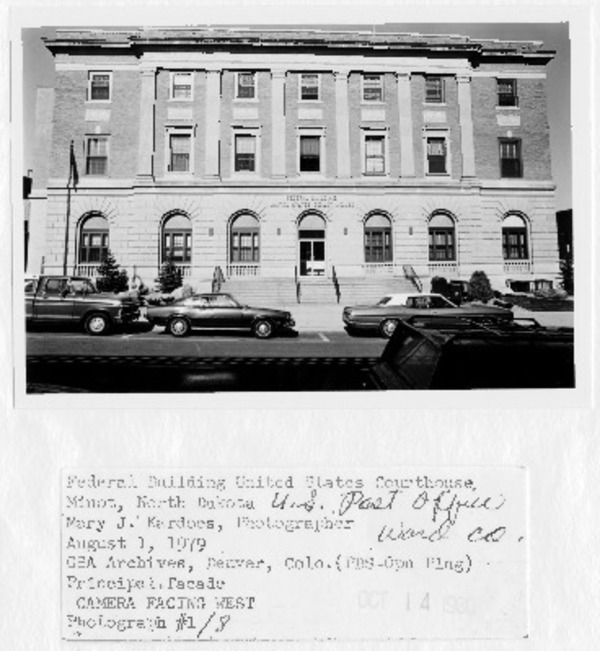 FEDERAL BUILDING
UNITED STATES COURT HOUSE
Federal Building United States Courthouse
Minot, North Dakota U.S. Post Office
Mary J. Kardoes, Photographer Ward Co.
August 1, 1979
GSA Archives, Denver, Colo. (PBS-Opn Plng)
Principal Facade
CAMERA FACING WEST
Photograph #1/8
OCT 14 1980